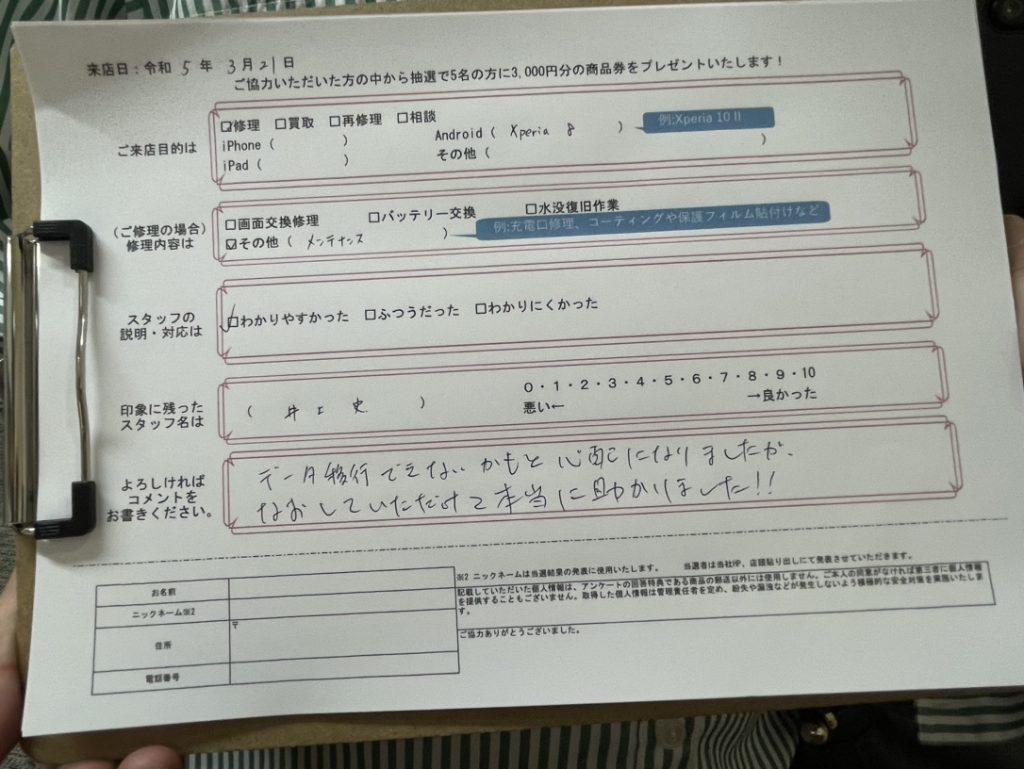 来店日：令和 5 年 3 月 21 日
ご協力いただいた方の中から抽選で5名の方に3,000円分の商品券をプレゼントいたします！
ご来店目的は
☑修理 □買取 □再修理 □相談
iPhone（ ） Android（ Xperia 8 ） 例:Xperia 10 II
iPad（ ） その他（ ）
（ご修理の場合）
修理内容は
□画面交換修理 □バッテリー交換 □水没復旧作業
☑その他（ メンテナンス ） 例:充電口修理、コーティングや保護フィルム貼付けなど
スタッフの
説明・対応は
☑わかりやすかった □ふつうだった □わかりにくかった
印象に残った
スタッフ名は
（ 井上 史 ）
0・1・2・3・4・5・6・7・8・9・10
悪い← →良かった
よろしければ
コメントを
お書きください。
データ移行できないかもと心配になりましたが、
なおしていただけて本当に助かりました!!
お名前
ニックネーム※2
住所
〒
電話番号
※2 ニックネームは当選結果の発表に使用いたします。 当選者は当社HP、店頭貼り出しにて発表させていただきます。
記載していただいた個人情報は、アンケートの回答特典である商品の郵送以外には使用しません。ご本人の同意がなければ第三者に個人情報
を提供することもございません。取得した個人情報は管理責任者を定め、紛失や漏洩などが発生しないよう積極的な安全対策を実施いたしま
す。
ご協力ありがとうございました。